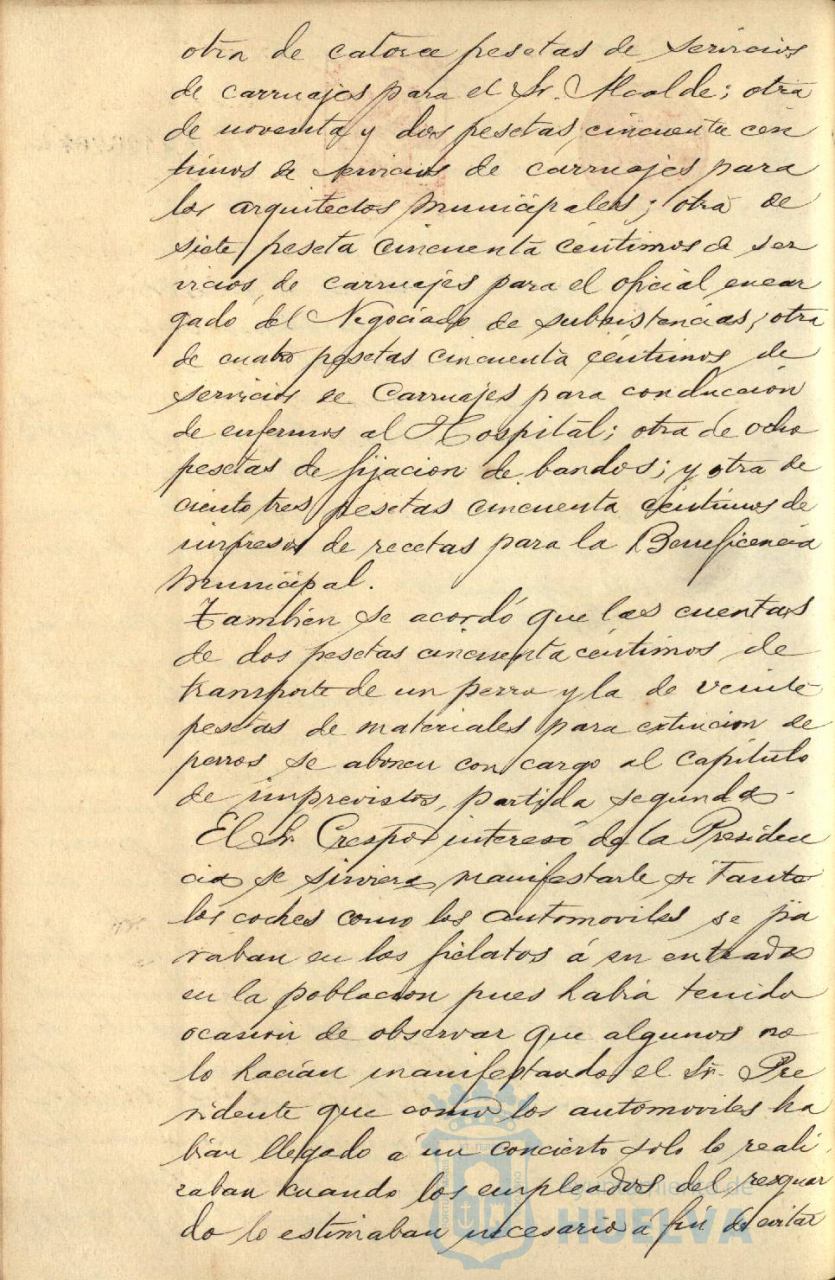 otra de catorce pesetas de servicios
de carruajes para el Sr. Alcalde; otra
de noventa y dos pesetas cincuenta cen
timos de servicios de carruajes para
los arquitectos municipales; otra de
siete peseta cincuenta céntimos de ser
vicios de carruajes para el oficial encar
gado del Negociado de subsistencias; otra
de cuatro pesetas cincuenta céntimos de
servicios de carruajes para conducción
de enfermos al Hospital; otra de ocho
pesetas de fijacion de bandos; y otra de
ciento tres pesetas cincuenta céntimos de
impresos de recetas para la Beneficencia
Municipal.
Tambien se acordó que las cuentas
de dos pesetas cincuenta céntimos de
transporte de un perro y la de veinte
pesetas de materiales para extincion de
perros se abonen con cargo al capítulo
de imprevistos, partida segunda.
El Sr. Crespo interesó de la Presiden
cia se sirviera manifestarle si tanto
los coches como los automoviles se pa
raban en los fielatos á su entrada
en la poblacion pues habia tenido
ocasion de observar que algunos no
lo hacian manifestando el Sr. Pre
sidente que como los automoviles ha
bian llegado á un concierto solo lo reali
zaban cuando los empleados del resguar
do lo estimaban necesario a fin de evitar
Ayuntamiento de
HUELVA